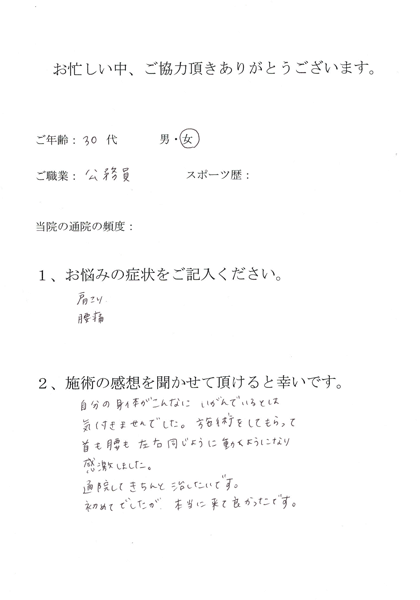 お忙しい中、ご協力頂きありがとうございます。
ご年齢：30代　男・女
ご職業：公務員　スポーツ歴：
当院の通院の頻度：
１、お悩みの症状をご記入ください。
肩こり
腰痛
２、施術の感想を聞かせて頂けると幸いです。
自分の身体がこんなに いがんでいるとは
気付きませんでした。施術をしてもらって
首も腰も 左右同じように動くようになり
感激しました。
通院してきちんと治したいです。
初めてでしたが 本当に来て良かったです。